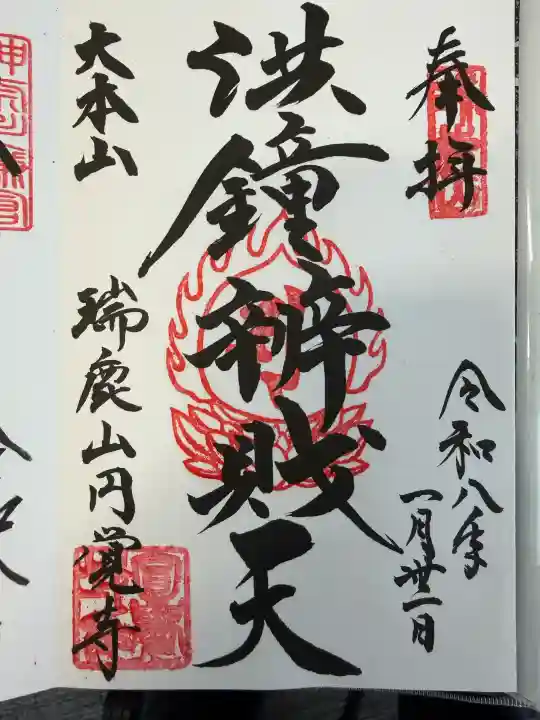 奉拝
令和八年
一月卅一日
洪鐘辨財天
大本山
瑞鹿山円覚寺